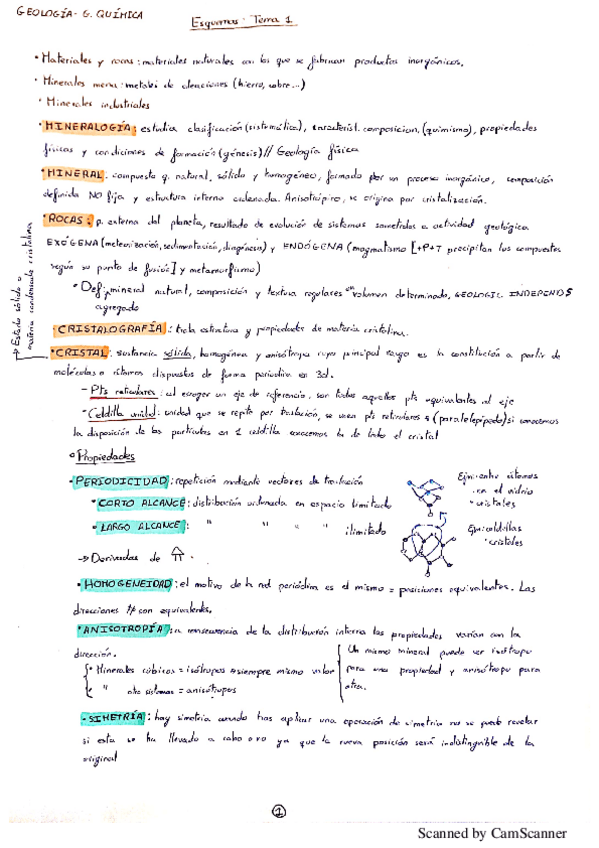 GEOLOGÍA - G. QUÍMICA
Esquemas: Tema 1
• Materiales y rocas: materiales naturales con los que se fabrican productos inorgánicos.
• Minerales mena: metales de aleaciones (hierro, cobre...)
• Minerales industriales
• MINERALOGÍA: estudia clasificación (sistemática), característ. composicion, (quimismo), propiedades
físicas y condiciones de formación (génesis) // Geología física
• MINERAL: compuesto q. natural, sólido y homogéneo, formado por un proceso inorgánico, composición
definida NO fija y estructura interna ordenada. Anisotrópico, se origina por cristalización.
• ROCAS: p. externa del planeta, resultado de evolución de sistemas sometidos a actividad geológica
EXÓGENA (meteorización, sedimentación, diagénesis) y ENDÓGENA (magmatismo [+P+T precipitan los compuestos
según su punto de fusión] y metamorfismo)
• Def: mineral natural, composición y textura regulares en volumen determinado, GEOLOGIC INDEPENDS
agregado
→ Estado sólido
materia cristalina
• CRISTALOGRAFÍA: trata estructura y propiedades de materia cristalina.
• CRISTAL: sustancia sólida, homogénea y anisótropa cuyo principal rasgo es la constitución a partir de
moléculas o átomos dispuestos de forma periodica en 3d.
- Pts reticulares: al escoger un eje de referencia, son todos aquellos pts equivalentes al eje
- Celdilla unidad: unidad que se repite por traslación, se usan pts reticulares (paralelepípedo) si conocemos
la disposición de las partículas en 1 celdilla conocemos la de todo el cristal
• Propiedades
• PERIODICIDAD: repetición mediante vectores de traslación
• CORTO ALCANCE: distribución ordenada en espacio limitado
• LARGO ALCANCE: " " " " ilimitado
Ej: entre átomos
en el vidrio
cristales
Ej: celdillas
cristales
→ Derivadas de ⇑.
• HOMOGENEIDAD: el motivo de la red periódica es el mismo = posiciones equivalentes. Las
direcciones // son equivalentes.
• ANISOTROPÍA: a consecuencia de la distribución interna las propiedades varían con la
dirección.
• Minerales cúbicos = isótropos siempre mismo valor
" otro sistemas = anisótropos
Un mismo mineral puede ser isótropo
para una propiedad y anisótropo para
otra.
• SIMETRÍA: hay simetría cuando tras aplicar una operación de simetría no se puede revelar
si esta se ha llevado a cabo o no ya que la nueva posición será indistinguible de la
original
1
Scanned by CamScanner